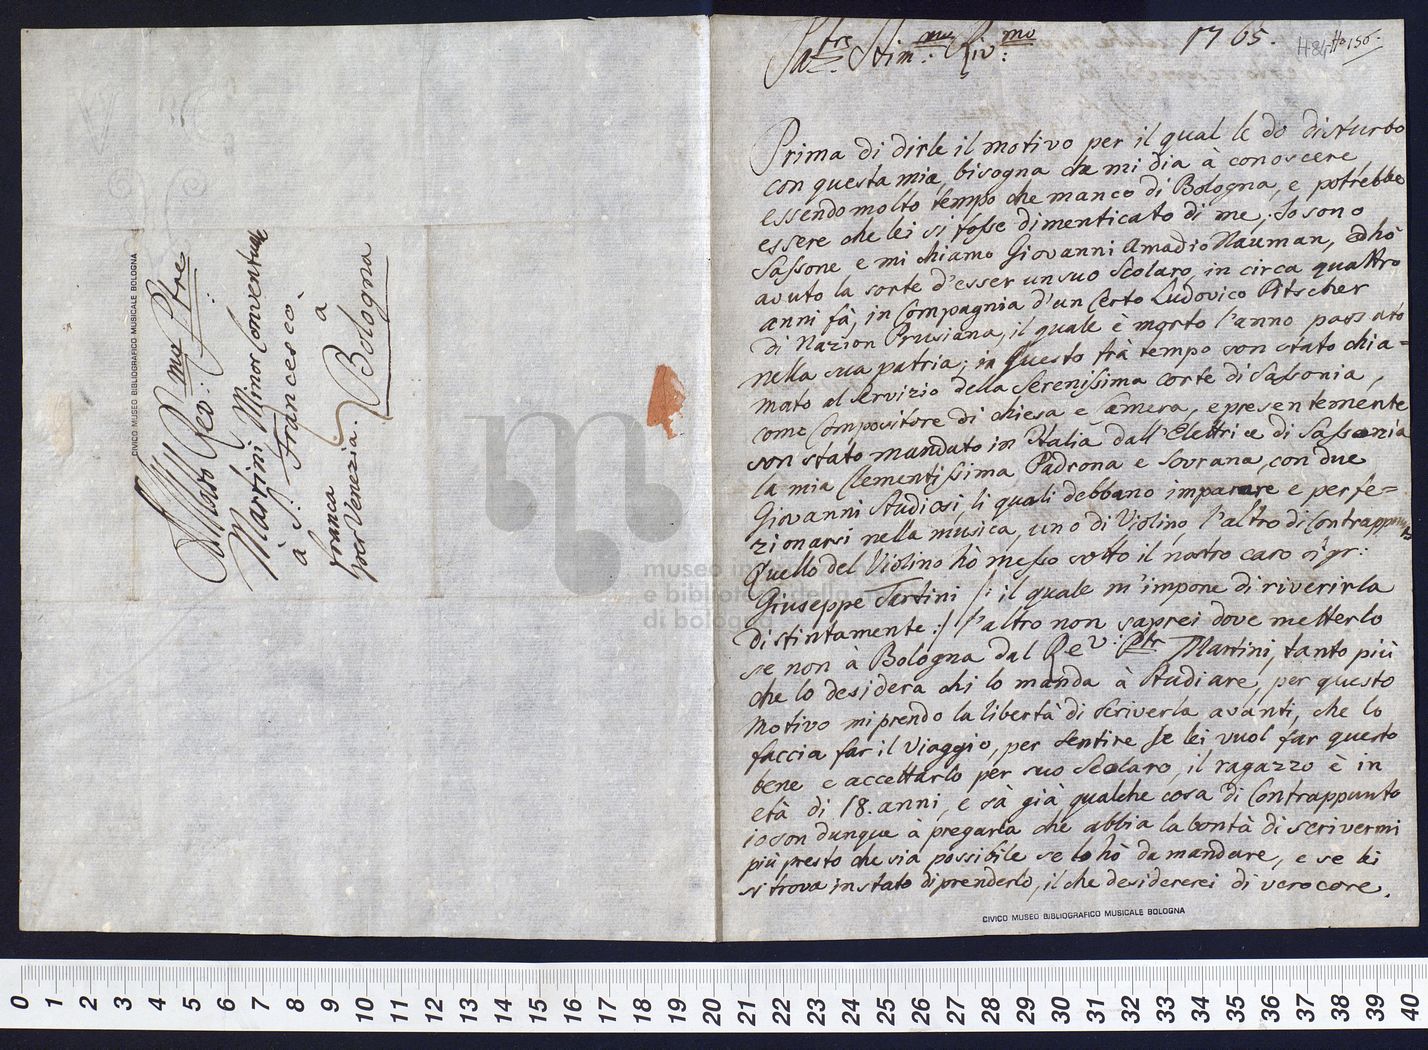 Al Molto Rev: mo Ptre
Martini Minor Conventuale
à S: Francesco
a
franca
per Venezia. Bologna
CIVICO MUSEO BIBLIOGRAFICO MUSICALE BOLOGNA
Pa: tre Stim: mo Riv: mo 1765.
H84 156.
Prima di dirle il motivo per il qual le dò disturbo
con questa mia, bisogna che mi dia à conoscere
essendo molto tempo che manco di Bologna, e potrebbe
essere che lei si fosse dimenticato di me; Io sono
Sassone e mi chiamo Giovanni Amadio Nauman, ed hò
avuto la sorte d'esser un suo Scolaro, in circa quattro
anni fà, in Compagnia d'un Certo Ludovico Pitscher
di Nazion Prusiana, il quale è morto l'anno passato
nella sua patria; in questo frà tempo son stato chia=
mato al Servizio della Serenissima corte di Sassonia,
come Compositore di chiesa e Camera, e presentemente
son stato mandato in Italia dall'Elettrice di Sassonia
la mia Clementissima Padrona e Sovrana, con due
Giovanni Studiosi, li quali debbano imparare e perfe=
zionarsi nella musica, uno di Violino, l'altro di Contrappunto
Quello del Violino hò messo sotto il nostro caro sigr:
Giuseppe Tartini /: il quale m'impone di riverirla
distintamente :/ l'altro non saprei dove metterlo
se non à Bologna dal Rev: Ptr Martini, tanto più
che lo desidera chi lo manda à Studiare, per questo
Motivo mi prendo la libertà di scriverla avanti, che lo
faccia far il viaggio, per sentire se lei vuol far questo
bene e accettarlo per suo Scolaro, il ragazzo è in
età di 18. anni, e sà già qualche cosa di Contrappunto
io son dunque à pregarla che abbia la bontà di scrivermi
più presto che sia possibile se lo hò da mandare, e se lei
si trova in stato di prenderlo, il che desidererei di vero core.
CIVICO MUSEO BIBLIOGRAFICO MUSICALE BOLOGNA
museo in
e biblioteca della
di bologna
0 1 2 3 4 5 6 7 8 9 10 11 12 13 14 15 16 17 18 19 20 21 22 23 24 25 26 27 28 29 30 31 32 33 34 35 36 37 38 39 40